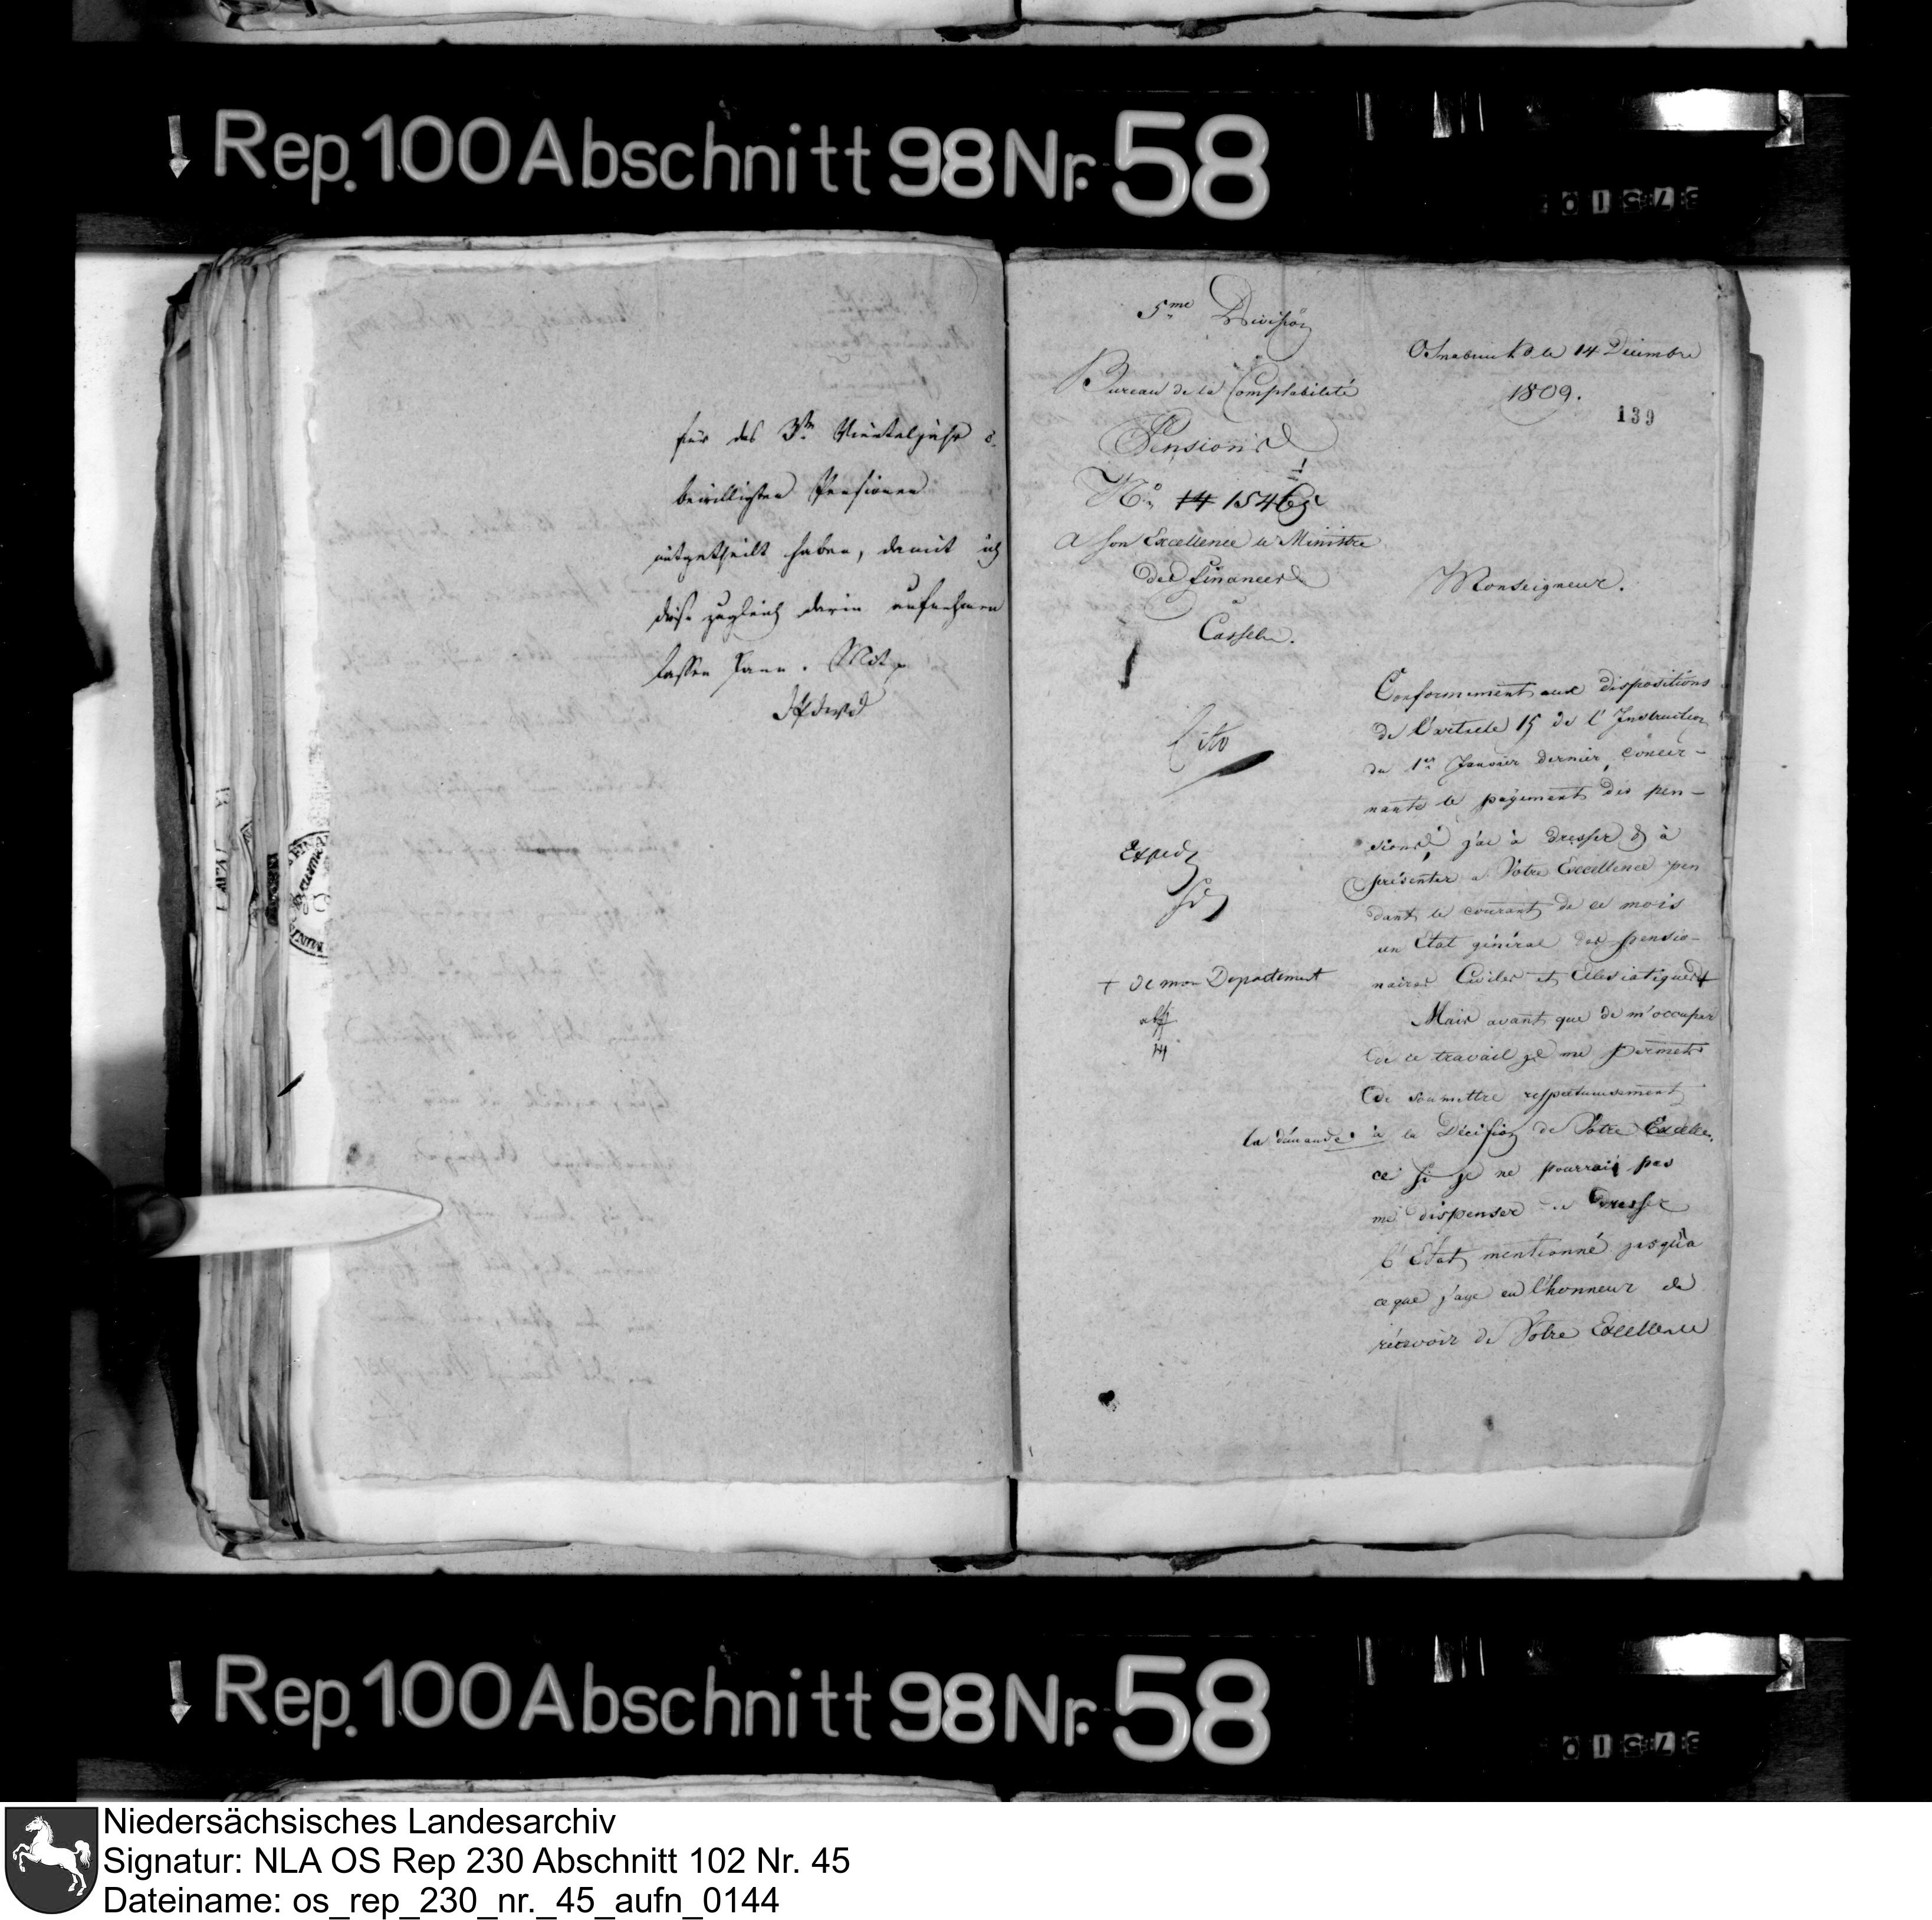 Rep. 100 Abschnitt 98 Nr. 58
für das 3te Vierteljahr
bewilligten Pensionen
mitgetheilt haben, damit ich
diese zugleich darin aufnehmen
lassen kann. Mit
5me Division
Bureau de la Comptabilité
Pensions
No. 14 1546
A son Excellence le Ministre
des finances
à
Cassel.
Osnabruck le 14 Decembre
1809.
139
Monseigneur.
Cito
Exped
+ de mon Departement
Conformement aux dispositions
de l'article 15 de l'Instruction
du 1er Janvier dernier, concer-
nante le payement des pen-
sions, j'ai à dresser & à
présenter a Votre Excellence pen
dant le courant de ce mois
un Etat général des pensio-
naires Civiles et Eclesiatiques +
Mais avant que de m'occuper
de ce travail je me permets
de soumettre respectueusement
la demande à la Décision de Votre Excellen
ce si je ne pourrais pas
me dispenser de dresser
l'Etat mentionné jusqu'a
ce que j'aye eu l'honneur de
recevoir de Votre Excellence
Rep. 100 Abschnitt 98 Nr. 58
Niedersächsisches Landesarchiv
Signatur: NLA OS Rep 230 Abschnitt 102 Nr. 45
Dateiname: os_rep_230_nr._45_aufn_0144